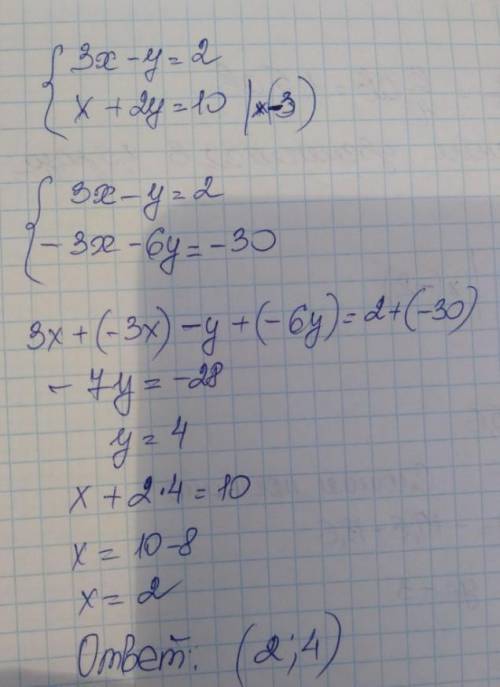 3x - y = 2
x + 2y = 10 |×(-3)
3x - y = 2
- 3x - 6y = - 30
3x + (-3x) - y + (-6y) = 2 + (-30)
- 7y = -28
y = 4
x + 2·4 = 10
x = 10 - 8
x = 2
Ответ: (2; 4)